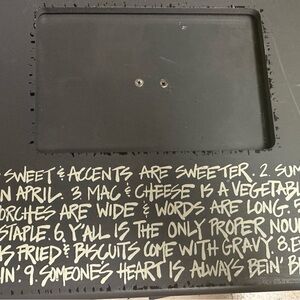 SWEET & ACCENTS ARE SWEETER. 2. SUM
N APRIL. 3. MAC & CHEESE IS A VEGETABL
ORCHES ARE WIDE & WORDS ARE LONG. 5
STAPLE. 6. Y'ALL IS THE ONLY PROPER NOU
IS FRIED & BISCUITS COME WITH GRAVY. 8. E
IN'. 9. SOMEONES HEART IS ALWAYS BEIN' B